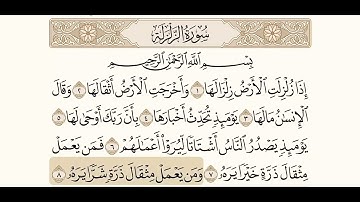 سُورَةُ الزَّلْزَلَةِ
بِسْمِ اللَّهِ الرَّحْمَٰنِ الرَّحِيمِ
إِذَا زُلْزِلَتِ الْأَرْضُ زِلْزَالَهَا ١ وَأَخْرَجَتِ الْأَرْضُ أَثْقَالَهَا ٢ وَقَالَ
الْإِنسَٰنُ مَالَهَا ٣ يَوْمَئِذٍ تُحَدِّثُ أَخْبَارَهَا ٤ بِأَنَّ رَبَّكَ أَوْحَىٰ لَهَا ٥
يَوْمَئِذٍ يَصْدُرُ النَّاسُ أَشْتَاتًا لِّيُرَوْا أَعْمَٰلَهُمْ ٦ فَمَن يَعْمَلْ
مِثْقَالَ ذَرَّةٍ خَيْرًا يَرَهُۥ ٧ وَمَن يَعْمَلْ مِثْقَالَ ذَرَّةٍ شَرًّا يَرَهُۥ ٨